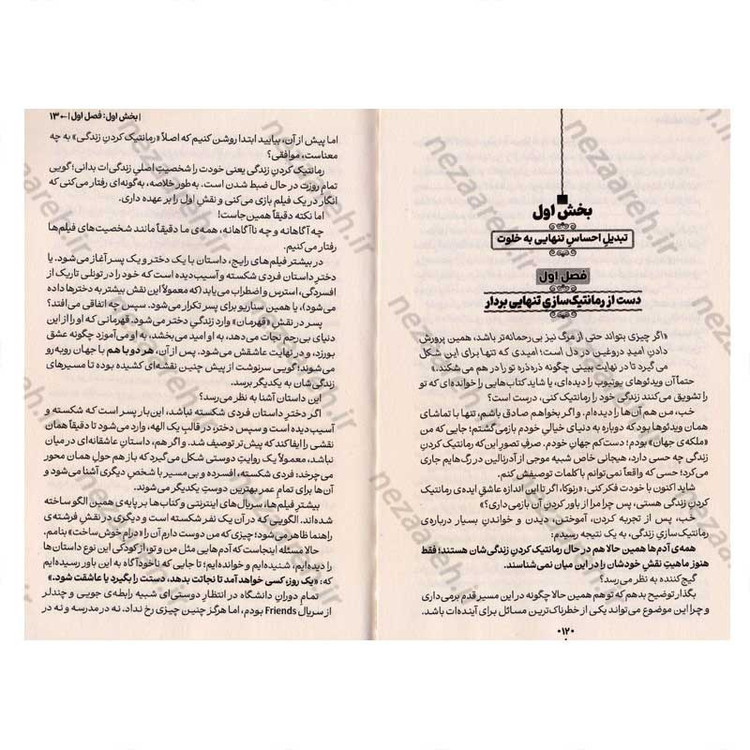 بخش اول
تبدیلِ احساسِ تنهایی به خلوت
فصل اول
دست از رمانتیک‌سازیِ تنهایی بردار
«اگر چیزی بتواند حتی از مرگ نیز بی‌رحمانه‌تر باشد، همین پرورش
دادنِ امیدِ دروغین در دل است؛ امیدی که تنها برای این شکل
می‌گیرد تا در نهایت ببینی چگونه ذره‌ذره تو را در هم می‌شکند.»
حتماً آن ویدئوهای یوتیوب را دیده‌ای، یا شاید کتاب‌هایی را خوانده‌ای که تو
را تشویق می‌کنند زندگی خود را رمانتیک کنی، درست است؟
خب، من هم آن‌ها را دیده‌ام. و اگر بخواهم صادق باشم، تنها با تماشای
همان ویدئوها بود که دوباره به دنیای خیالیِ خودم بازمی‌گشتم؛ جایی که من
«ملکه‌ی جهان» بودم؛ دست‌کم جهانِ خودم. صرفِ تصورِ این‌که رمانتیک کردنِ
زندگی چه حسی دارد، هیجانی خاص آمیزه‌ای موجی از آدرنالین در رگ‌هایم جاری
می‌کرد؛ حسی که واقعاً نمی‌توانم با کلمات توصیفش کنم.
شاید اکنون با خودت فکر کنی: «رنوکا، اگر تا این اندازه عاشقِ ایده‌ی رمانتیک
کردنِ زندگی هستی، پس چرا مرا از باور کردنِ آن بازمی‌داری؟»
خب، پس از تجربه کردن، آموختن، دیدن و خواندنِ بسیار درباره‌ی
رمانتیک‌سازیِ زندگی، به یک نتیجه رسیدم:
همه‌ی آدم‌ها همین حالا هم در حال رمانتیک کردنِ زندگی‌شان هستند؛ فقط
هنوز ماهیتِ نقشِ خودشان را در این میان نمی‌شناسند.
گیج‌کننده به نظر می‌رسد؟
بگذار توضیح بدهم که تو هم همین حالا چگونه در این مسیر قدم برمی‌داری
و چرا این موضوع می‌تواند یکی از خطرناک‌ترین مسائل برای آینده‌ات باشد.
۱۲۰
| بخش اول: فصل اول | ۱۳۰
اما پیش از آن، بیایید ابتدا روشن کنیم که اصلاً «رمانتیک کردنِ زندگی» به چه
معناست، موافقی؟
رمانتیک کردنِ زندگی یعنی خودت را شخصیتِ اصلیِ زندگی‌ات بدانی؛ گویی
تمامِ روزت در حال ضبط شدن است. به‌طور خلاصه، به‌گونه‌ای رفتار می‌کنی که
انگار در یک فیلم بازی می‌کنی و نقش اول را بر عهده داری.
اما نکته دقیقاً همین‌جاست!
چه آگاهانه و چه ناآگاهانه، همه‌ی ما دقیقاً مانند شخصیت‌های فیلم‌ها
رفتار می‌کنیم.
در بیشتر فیلم‌های رایج، داستان با یک دختر و یک پسر آغاز می‌شود. یا
دخترِ داستان فردی شکسته و آسیب‌دیده است که خود را در تونلی تاریک از
افسردگی، استرس و اضطراب می‌یابد (که معمولاً این نقش بیشتر به دخترها داده
می‌شود)، یا همین سناریو برای پسر تکرار می‌شود. سپس چه اتفاقی می‌افتد؟
پسر در نقشِ «قهرمان» وارد زندگیِ دختر می‌شود. قهرمانی که او را از این
دنیای بی‌رحم نجات می‌دهد، به او امید می‌بخشد، به او می‌آموزد چگونه عشق
بورزد، و در نهایت عاشقش می‌شود. پس از آن، هر دو با هم با جهان روبه‌رو
می‌شوند؛ گویی سرنوشت از پیش چنین نقشه‌ای کشیده بوده تا مسیرهای
زندگی‌شان به یکدیگر برسد.
این داستان آشنا به نظر می‌رسد؟
اگر دخترِ داستان فردی شکسته نباشد، این بار پسر است که شکسته و
آسیب‌دیده است و سپس دختر، در قالبِ یک الهه، وارد می‌شود تا دقیقاً همان
نقشی را ایفا کند که پیش‌تر توصیف شد. و اگر هم، داستانِ عاشقانه‌ای در میان
نباشد، معمولاً یک روایتِ دوستی شکل می‌گیرد که باز هم حولِ همان محور
می‌چرخد: فردی شکسته، افسرده و بی‌مسیر با شخصِ دیگری آشنا می‌شود و
آن‌ها برای تمام عمر بهترین دوستِ یکدیگر می‌شوند.
بیشترِ فیلم‌ها، سریال‌های اینترنتی و کتاب‌ها بر پایه‌ی همین الگو ساخته
شده‌اند. الگویی که در آن یک نفر شکسته است و دیگری در نقشِ فرشته‌ی
راهنما ظاهر می‌شود؛ چیزی که من دوست دارم آن را «درامِ خوش ساخت» بنامم.
حالا مسئله اینجاست که آدم‌هایی مثل من و تو، از کودکی این نوع داستان‌ها
را دیده‌ایم، شنیده‌ایم و خوانده‌ایم؛ تا جایی که ناخودآگاه به این باور رسیده‌ایم
که: «یک روز، کسی خواهد آمد تا نجاتت بدهد، دستت را بگیرد یا عاشقت شود.»
تمام دورانِ دانشگاه در انتظارِ دوستی‌ای شبیه رابطه‌ی جویی و چندلر
از سریالِ Friends بودم، اما هرگز چنین چیزی رخ نداد. نه در مدرسه و نه در
nezaareh.ir